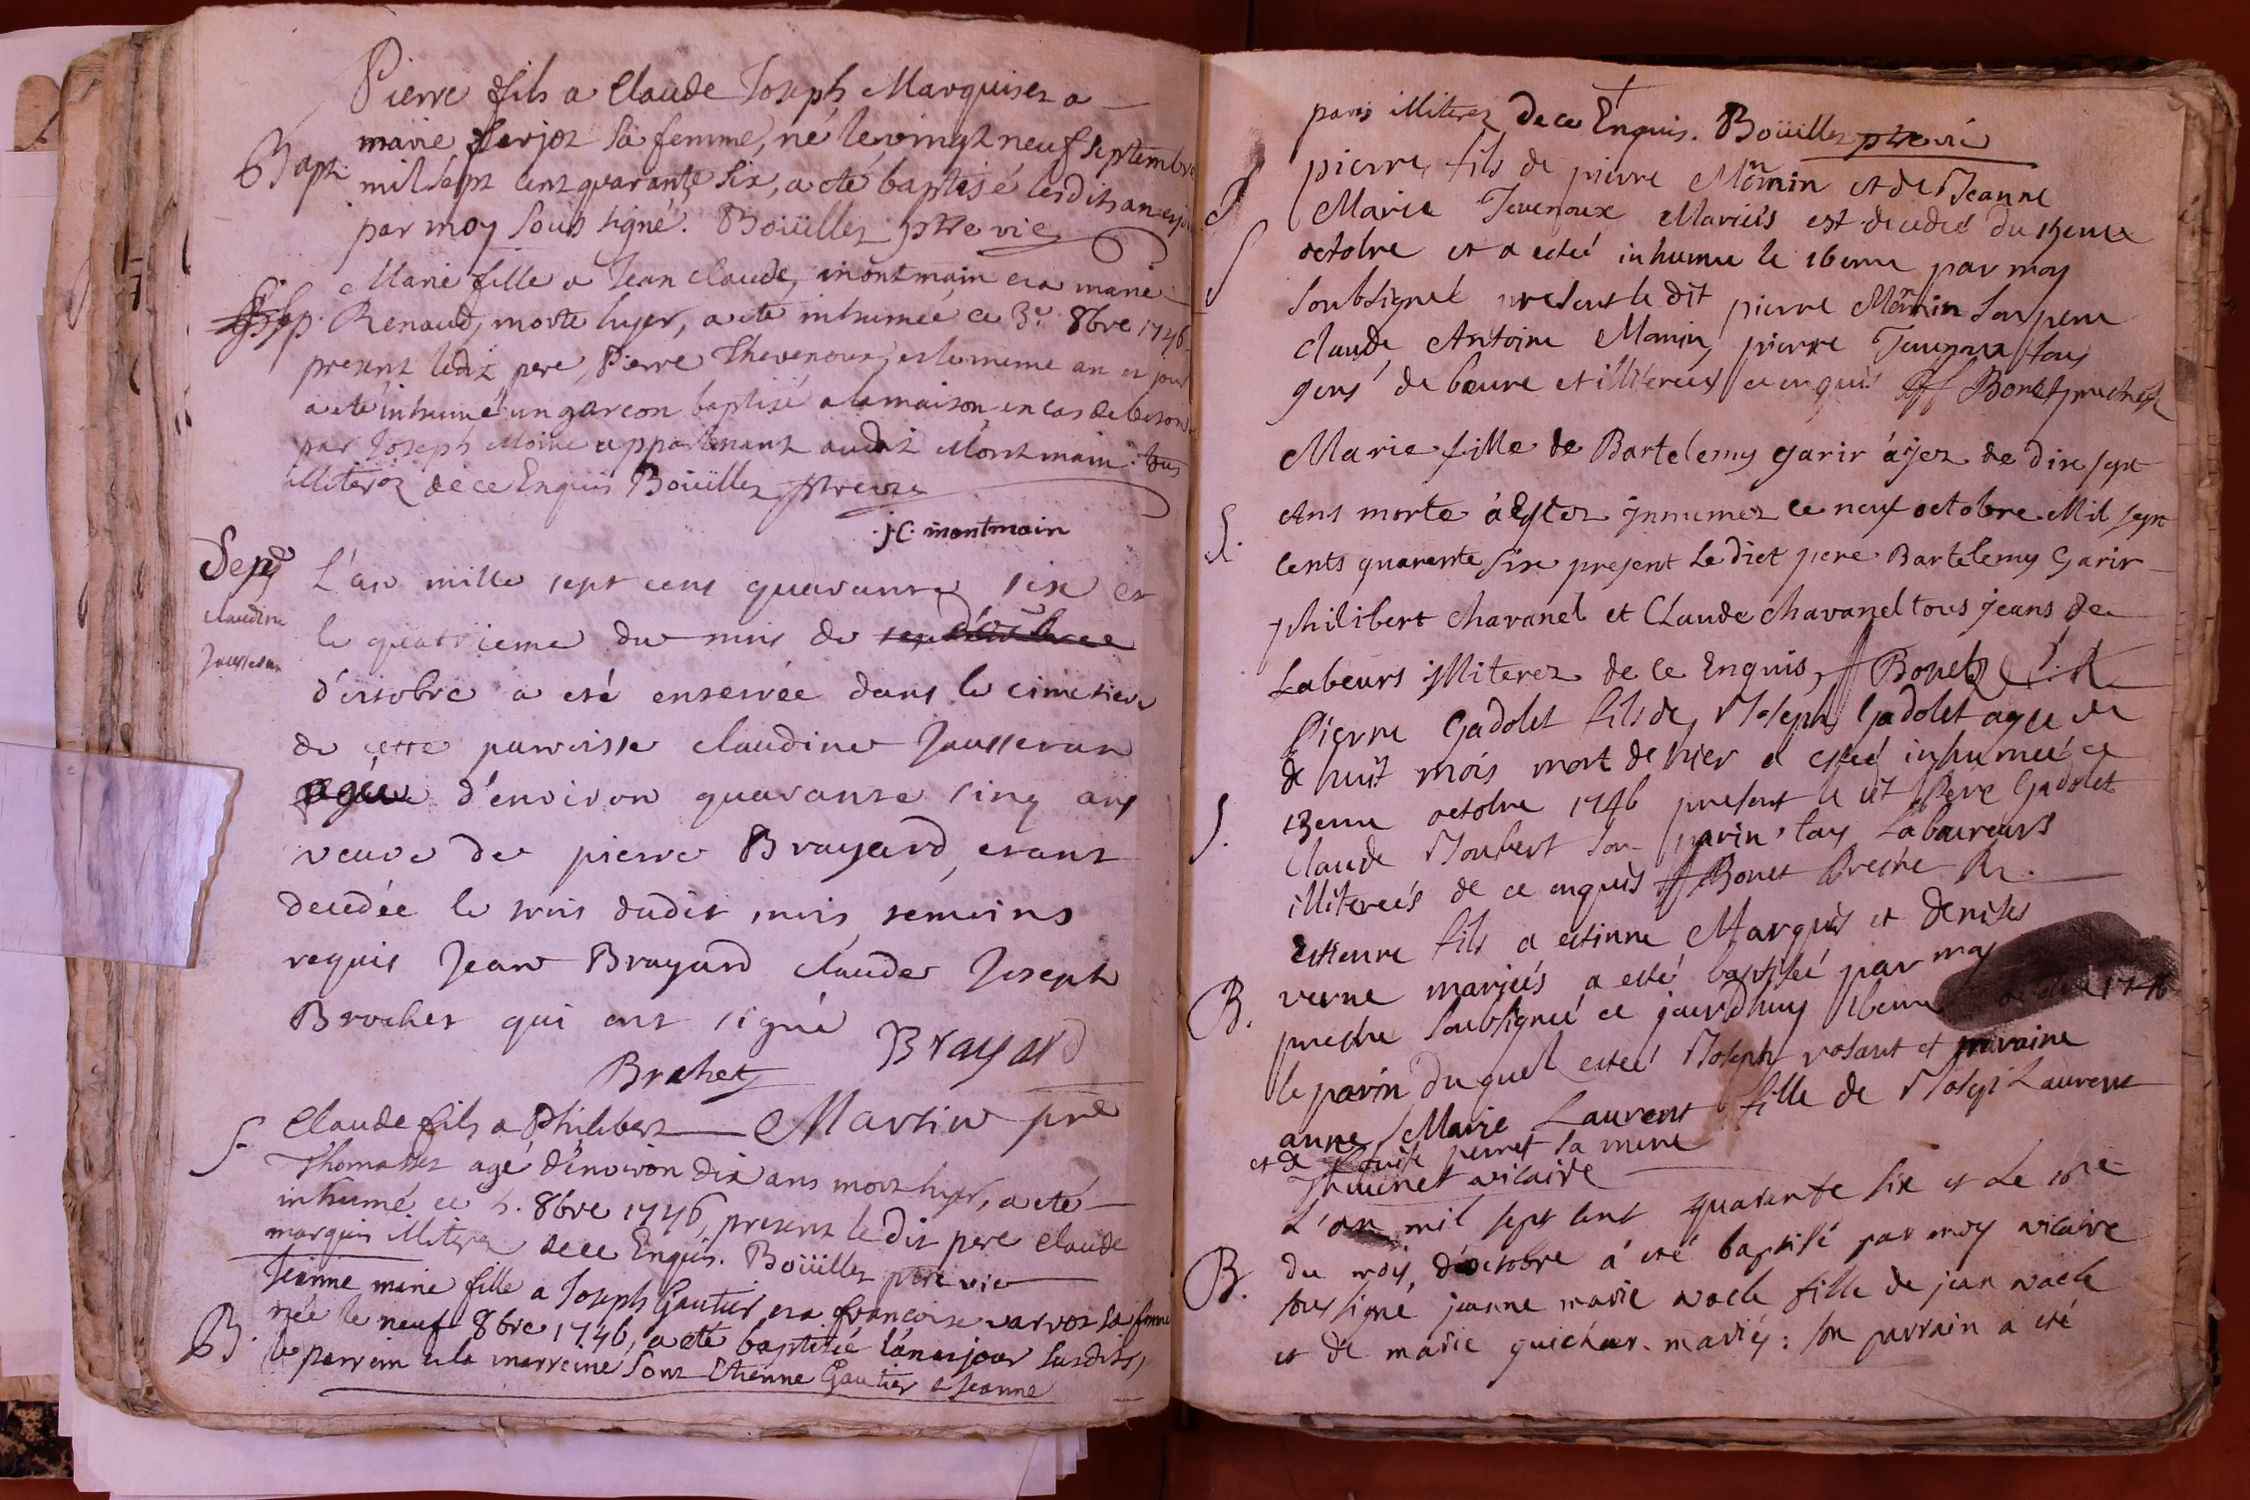 Pierre fils a Claude Joseph Marquisez a
marie Serjoz sa femme, né le vingt neuf septembre
Bapt. mil sept cent quarante six, a eté baptisé lesdits an et jour
par moy sous signé. Boüillez ptre vic
Marie fille a Jean claude montmain et a marie
Sep. Renaud, morte hyer, a ete inhumée ce 3e. 8bre 1746
present ledit pere, Pierre Thevenoux, et le meme an et jour
a ete inhumé un garcon baptisé a la maison en cas de besoin
par Joseph Moine appartenant audit Montmain. tous
illiterez de ce Enquis Boüillez ptre vic
J.C. montmain
Sep L'an mille sept cens quarante six et
claudine le quatrieme du mois de septembre
Jousseran d'octobre a eté enterrée dans le cimetiere
de cette paroisse claudine Jousseran
agée d'environ quarante cinq ans
veuve de pierre Brayard, etant
decedée le trois dudit mois temoins
requis Jean Brayard claude Joseph
Brochet qui ont signé
Brochet Brayard
S Claude fils a Philibert Martin pre
Thomasset agé d'environ dix ans mort hyer, a eté
inhumé ce 5. 8bre 1746, present le dit pere claude
marquis illiterez de ce Enquis. Boüillez ptre vic
Jeanne marie fille a Joseph Gautier et a francoise varvoz sa femme
née le neuf 8bre 1746, a eté baptisée l'an et jour susdits,
B. le parrein et la marreine sont Etienne Gautier et Jeanne
paris illiterez de ce Enquis. Boüillez ptre vic
pierre fils de pierre Momin et de Jeanne
Marie Tevenoux Mariés est decedé du
S octobre et a esteé inhumé le par moy
soubsigneé present le dit pierre Momin son pere
claude Antoine Momin, pierre Tevenoux tous
gens de labeure et illitereés ce enquis Bonet prestre
Marie fille de Bartelemy garir ágez de dix sept
S. Ans morte á estez innumez ce neuf octobre Mil sept
cents quarente six present Le dict pere Bartelemy Garir
philibert chavanel et Claude chavanel tous jeans de
Labeurs illiterez de ce Enquis, Bonet
Pierre Gadolet fils de Joseph Gadolet agee de
de huit mois mort de hier a esteé inhumeé ce
S. 13eme octobre 1746 present le dit Pere Gadolet
Claude Joubert son parin, tous Laboureurs
illitereés de ce enquis Bonet Prestre
estienne fils a estinne Marquis et denise
B. verne mariés a esté baptiseé par moy
prestre soubsigneé ce jourdhuy
le parin duquel esteé Joseph volant et maraine
anne Marie Laurent fille de Joseph Laurent
et de perret sa mere
Thuienet vicaire
L'an mil sept cent quarante six et Le 16me
B. du mois, d'octobre á eté baptisé par moy vicaire
sous signé jeanne marie fille de jean
et de marie guichar. mariés: son parrain a eté